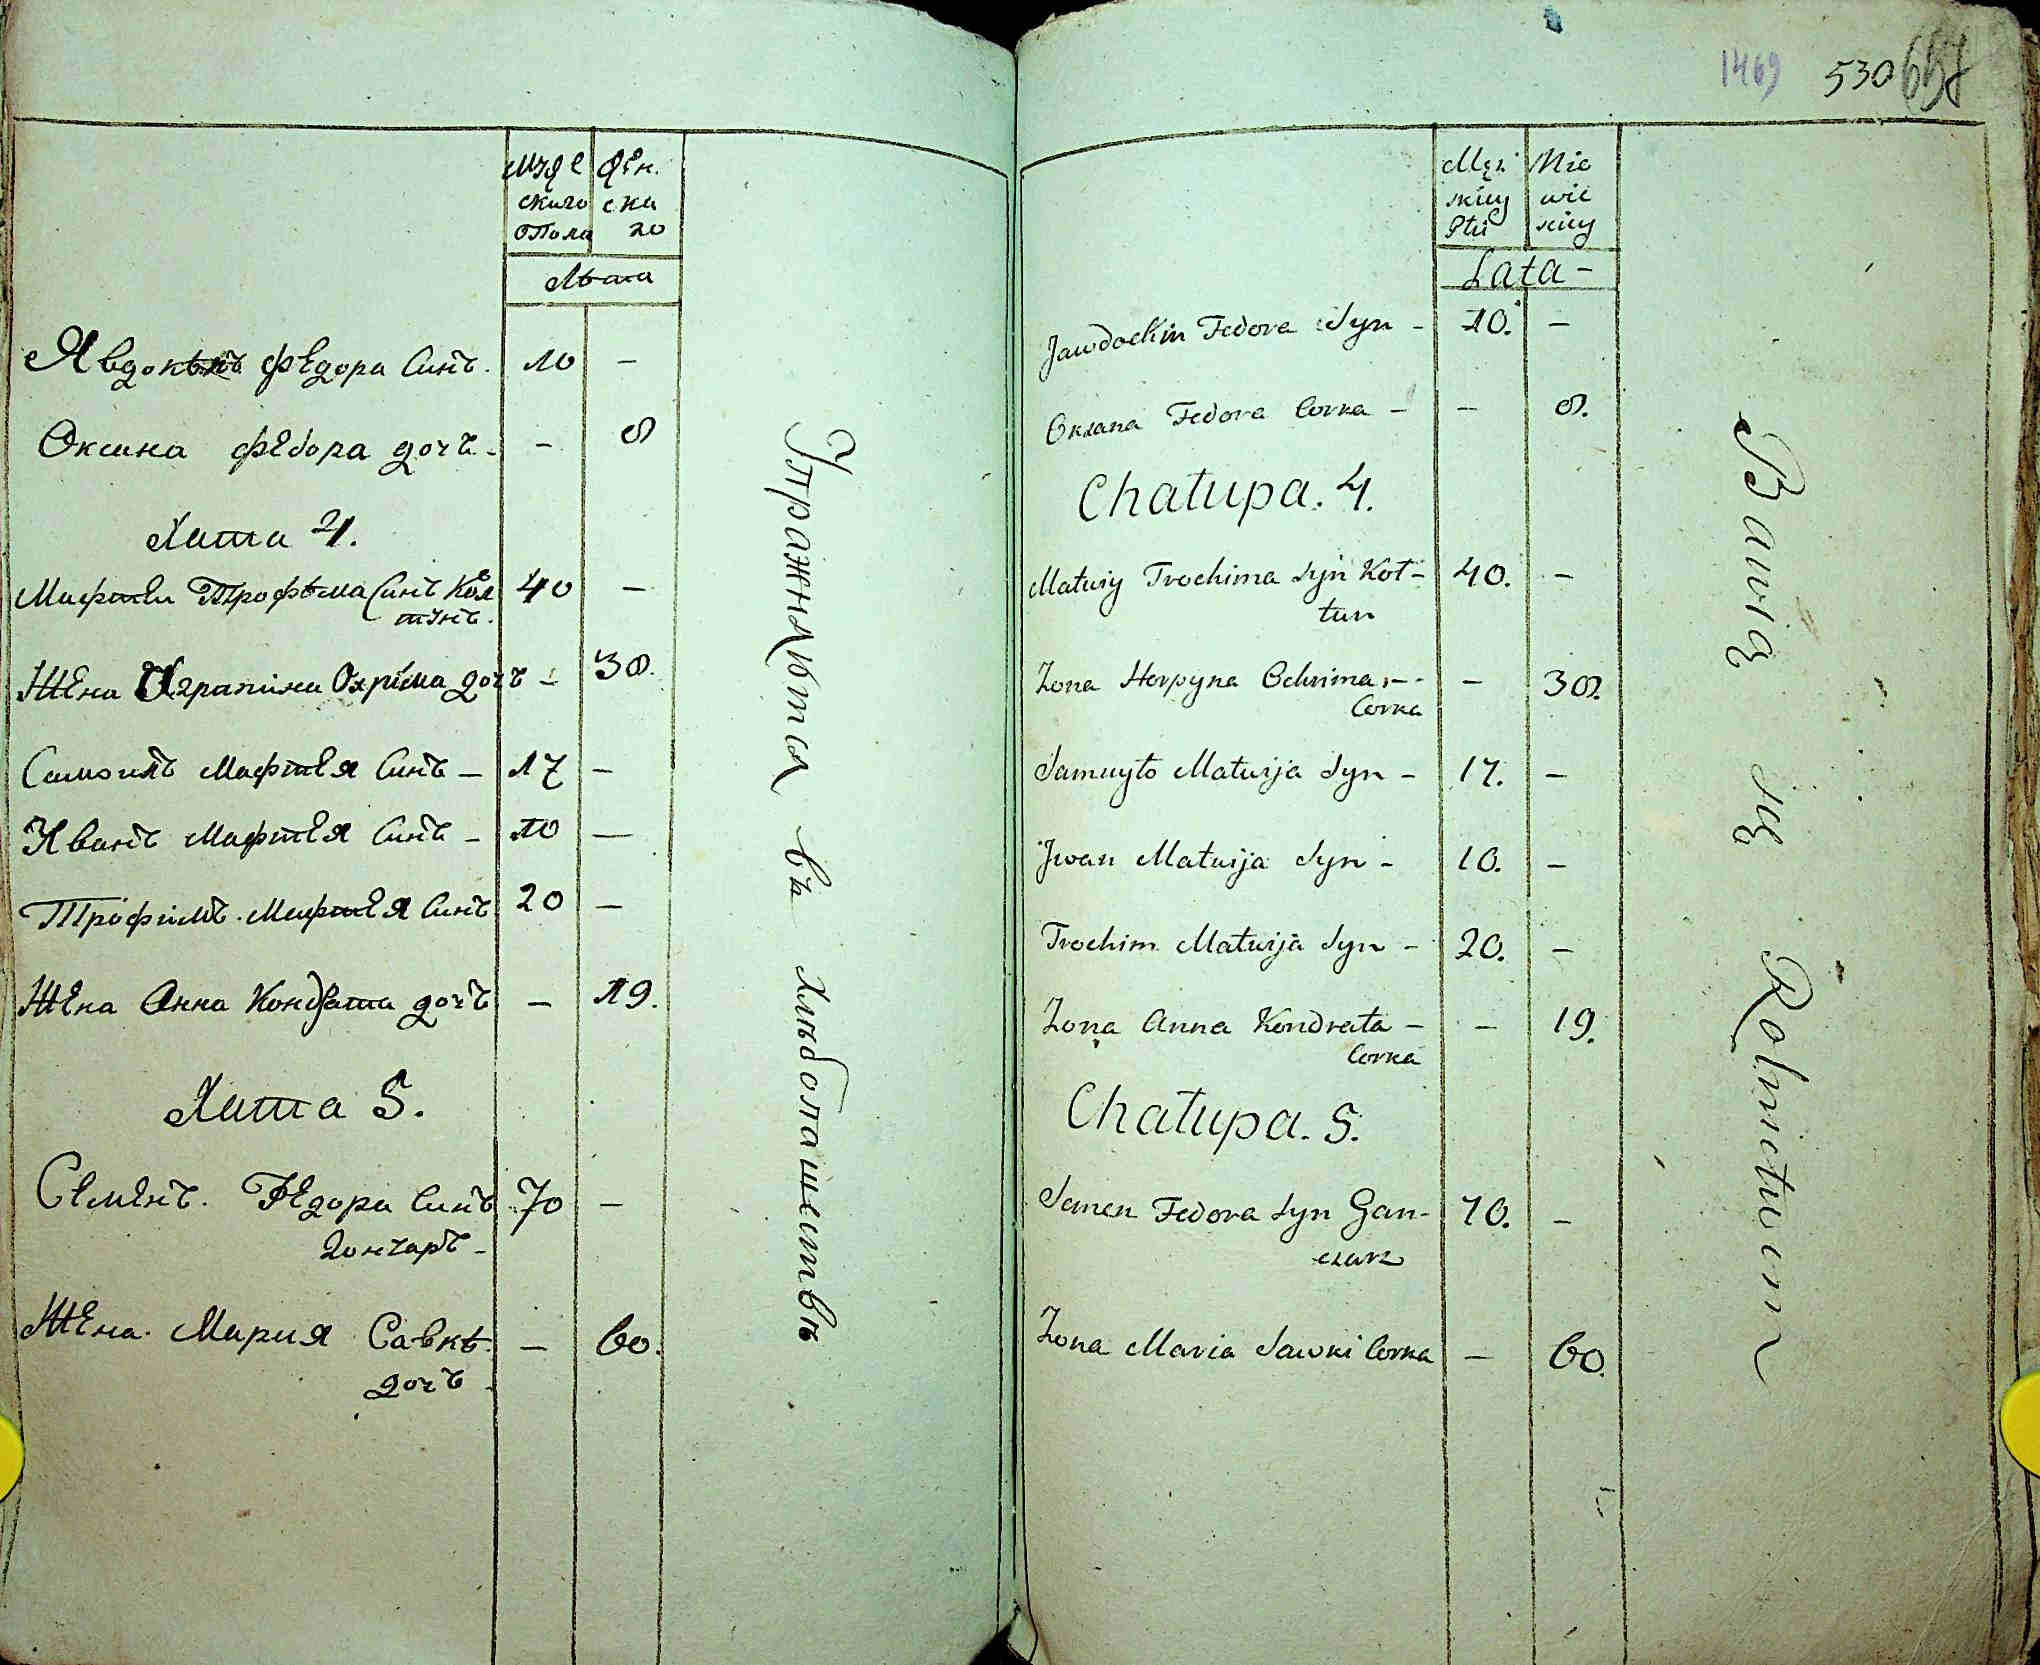 мужеского пола
женскаго
Лѣта
Явдокѣмъ Федора Синъ. 10 –
Оксана Федора дочь – – 8
Хата 4.
Мафтей Трофѣма Синъ Кол 40 –
тунъ.
Жена Ограпина Охрима дочь – 38.
Самоилъ Мафтея Синъ – 17 –
Иванъ Мафтея Синъ – 10 –
Трофимъ. Мафтея Синъ 20 –
Жена Анна Кондрата дочь – 19.
Хата 5.
Семенъ. Федора Синъ 70 –
гончаръ –
Жена. Мария Савкѣ – 60.
дочь –
Упражняются въ хлѣбопашествѣ
1469 530 658
Męzkiey Płci
Niewieskiey
Lata –
Jawdockim Fedora Syn – 10. –
Oxana Fedora Corka – – 8.
Chałupa. 4.
Matwiy Trochima Syn Koł– 40. –
tun
Zona Horpyna Ochrima – – 38.
Corka
Samuyło Matwija Syn – 17. –
Jwan Matwija Syn – 10. –
Trochim Matwija Syn – 20. –
Zona Anna Kondrata – – 19.
Corka
Chałupa. 5.
Semen Fedora Syn Gan– 70. –
czarz
Zona Maria Sawki Corka – 60.
Bawią się Rolnictwem